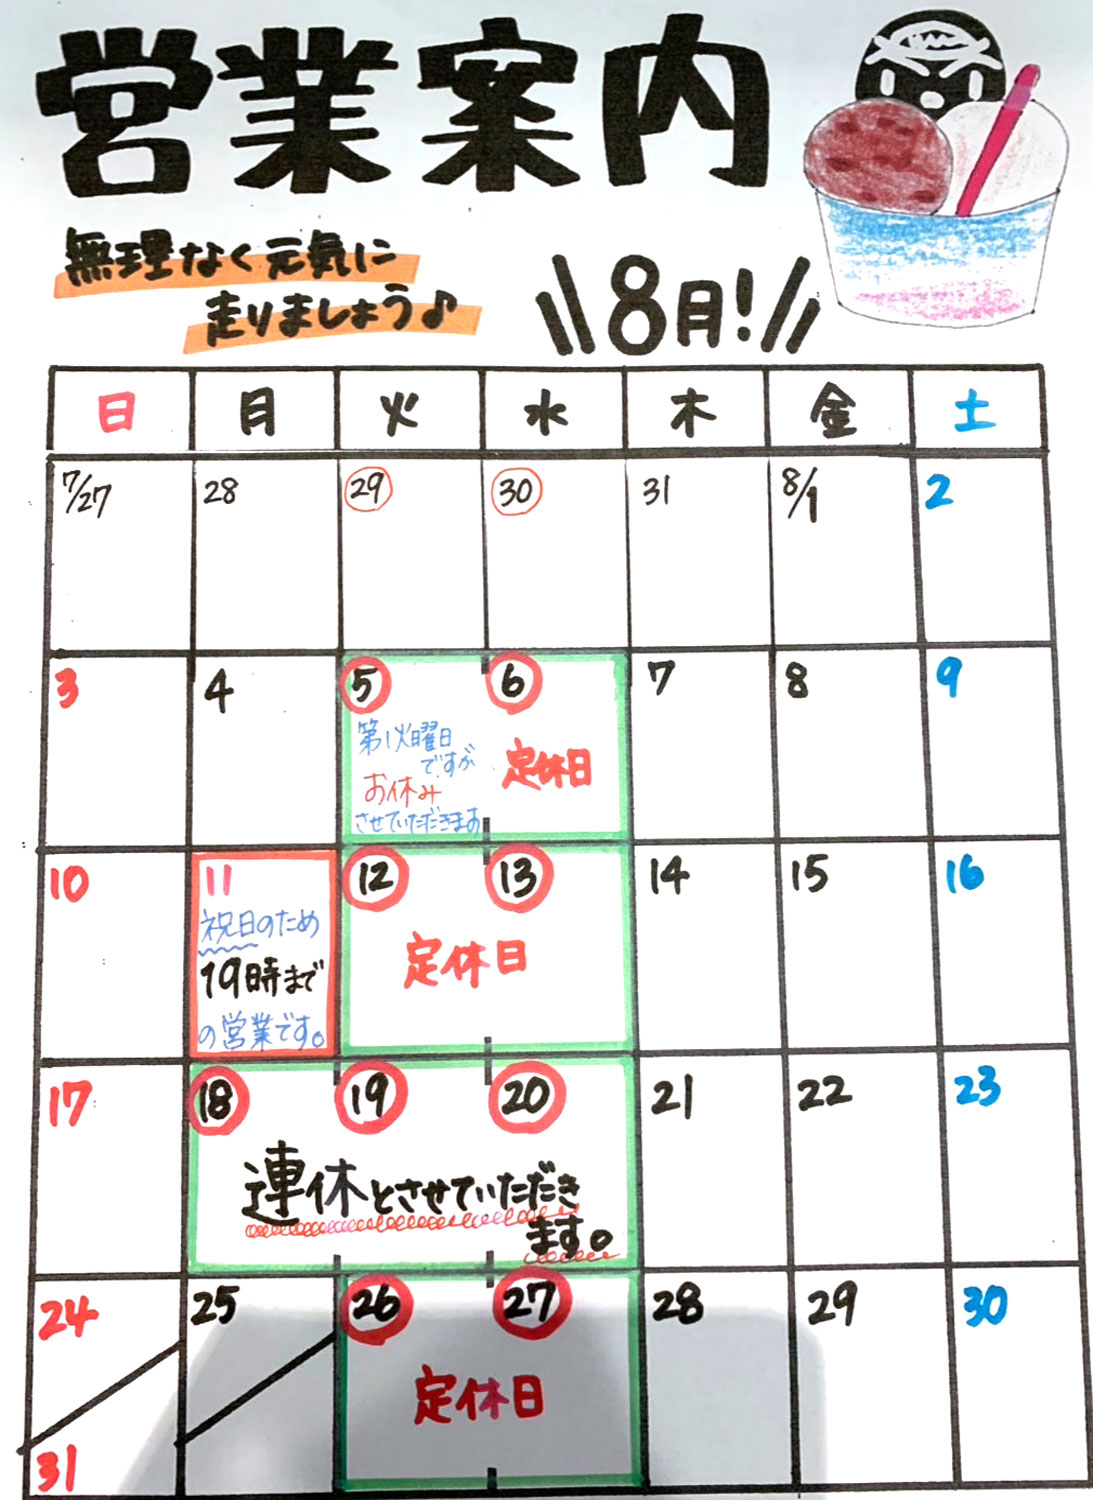 営業案内
無理なく元気に
走りましょう♪
8月!
日 月 火 水 木 金 土
7/27 28 29 30 31 8/1 2
3 4 5 6 7 8 9
第1火曜日
ですが
お休み
させていただきます
定休日
10 11 12 13 14 15 16
祝日のため
19時まで
の営業です。
定休日
17 18 19 20 21 22 23
連休とさせていただき
ます。
24 25 26 27 28 29 30
定休日
31